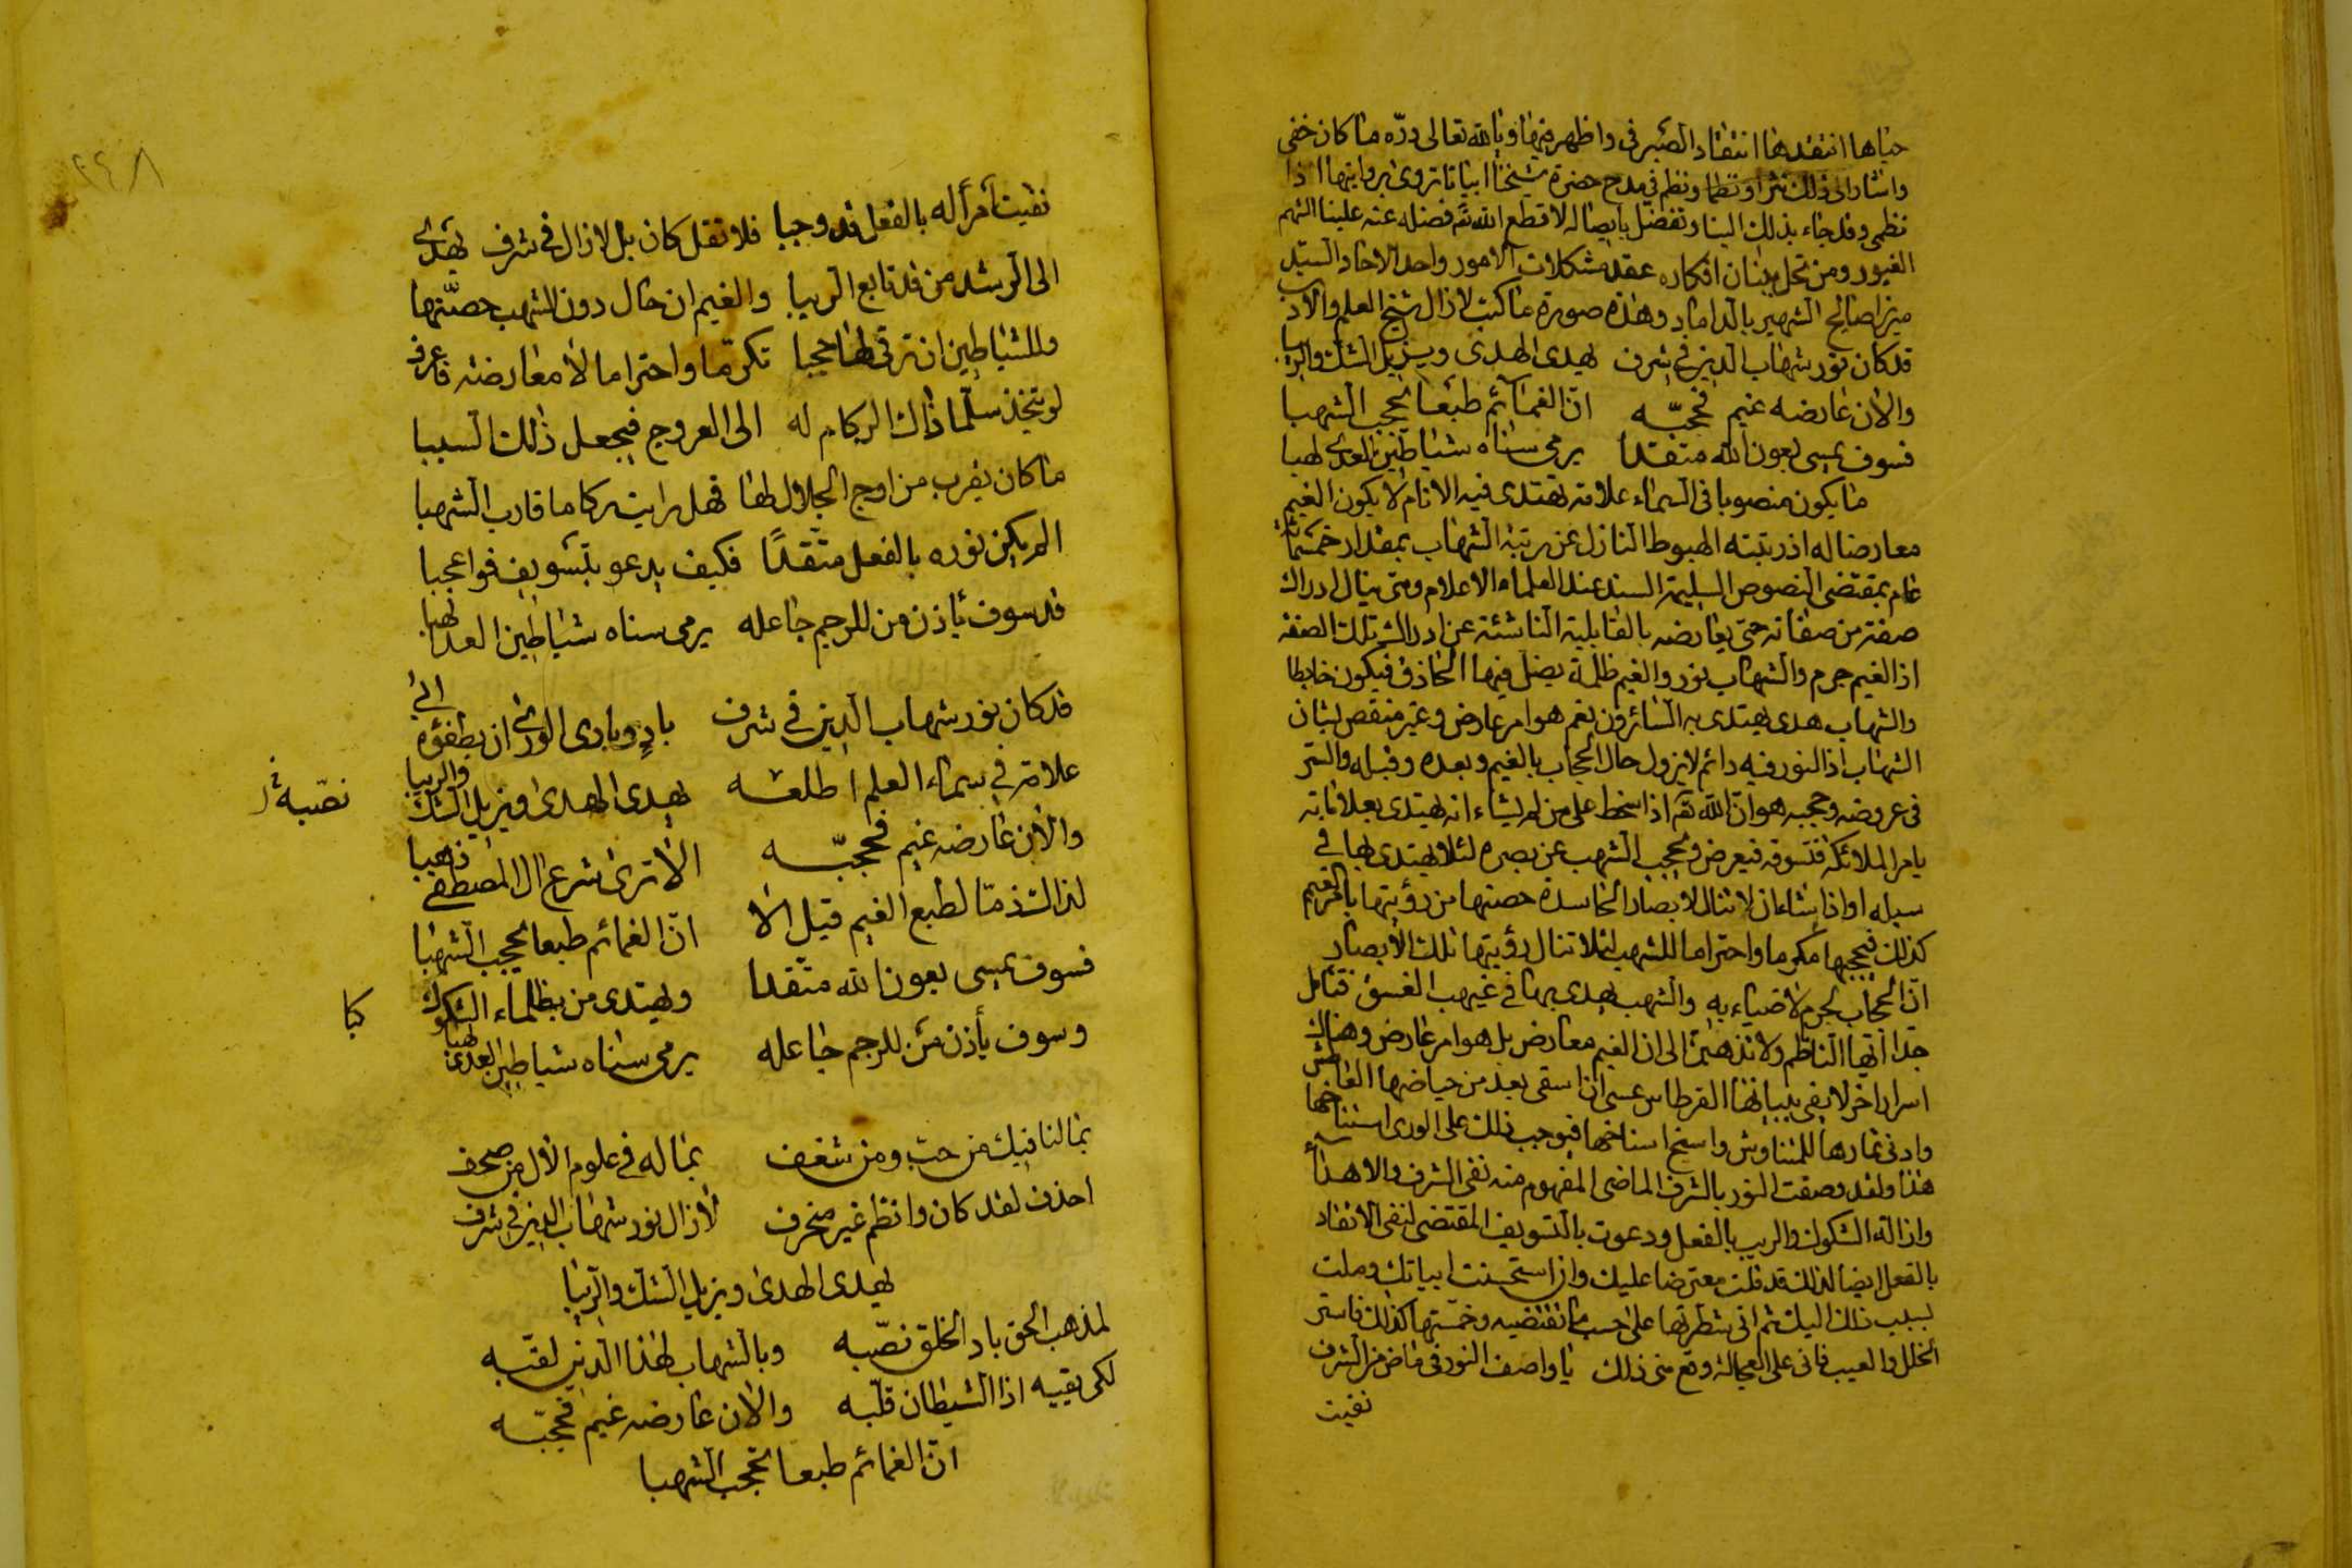 حباها انتقدها انتقاد الصيرفي واظهر فيها وبالله تعالى درّه ما كان خفي
واشار الى ذلك نثرا ونظما ونظم في مدح حضرة شيخنا ابياتا تروى بروايتها اذا
نظمى وقد جاء بذلك الينا وتفضل بايصاله لا قطع الله تع فضله عنه علينا الشهم
الغيور ومن تحل ببنان افكاره عقد مشكلات الامور واحد الاحاد السيّد
ميرزا صالح الشهير بالداماد وهذه صورة ما كتب لازال شيخ العلم والادب
قد كان نور شهاب الدين في شرف يهدى الهدى ويزيل الشك والريبا
والان عارضه غيم فحجبّه انّ الغمائم طبعا تحجب الشهبا
فسوف يمسى بعون الله متقدا يرمى سناه شياطين العدى لهبا
ما يكون منصوبا في السماء علامة تهتدى فيه الانام لا يكون الغيم
معارضا له اذ رتبته الهبوط النازل عن رتبة الشهاب بمقدار خمسمائة
عام بمقتضى النصوص السليمة السند عند العلماء الاعلام ومتى ينال ادراك
صفة من صفاته حتى يعارضه بالقابلية الناشئة عن ادراك تلك الصفة
اذ الغيم جرم والشهاب نور والغيم ظلمة يضل فيها الحاذق فيكون خابطا
والشهاب هدى يهتدى به السائرون نعم هو امر عارض وغير منقص لشان
الشهاب اذ النور فيه دائم لايزول حال الحجاب بالغيم وبعده وقبله والسر
في عروضه وحجبه هو ان الله تع اذا سخط على من لم يشاء انه يهتدى بعلاماته
يامر الملائكة فتسوقه فيعرض ويحجب الشهب عن بصره لئلا يهتدى بها في
سبله او اذا شاء ان لا تنال الابصار الحاسدة حصتها من رؤيتها يامر الغيم
كذلك فيحجبها تكرما واحتراما للشهب لئلا تنال رؤيتها تلك الابصار
انّ الحجاب لجرم لا ضياء به والشهب يهدى بها في غيهب الغسق فتامل
جدا ايّها الناظم ولا تذهبنّ الى ان الغيم معارض بل هو امر عارض وهناك
اسرار اخر لا يفى ببيانها القرطاس عسى ان اسقى بعد من حياضها العاطش
وادنى ثمارها للمتناوش وانسخ استاخها فيوجب ذلك على الورى استنساخها
هذا ولقد وصفت النور بالشرف الماضى المفهوم منه نفى الشرف والاهداء
وازالة الشكوك والريب بالفعل ودعوت بالتسويف المقتضى لنفى الاتقاد
بالفعل ايضا لذلك قد قلت معترضا عليك وان استحسنت ابياتك وملت
بسبب ذلك اليك ثم انى شطرتها على حسب ما تقتضيه وخمستها كذلك فاستر
الخلل والعيب فانى على العجالة وقع منى ذلك يا واصف النور في ماض من الشرف
نفيت
نفيت امرأ له بالفعل قد وجبا فلا تقل كان بل لازال في شرف يهدى
الى الرشد من قد تابع الريبا والغيم ان حال دون الشهب حصّنها
وللشياطين ان ترقى لها حجبا تكرمّا واحتراما لا معارضة فاعرف
لو يتخذ سلّما ذاك الركام له الى العروج فيجعل ذلك السببا
ما كان يقرب من اوج الجلال لها فهل رايت ركاما قارب الشهبا
الم يكن نوره بالفعل متّقدًا فكيف يدعو بتسويف فوا عجبا
قد سوف ياذن من للرجم جاعله يرمى سناه شياطين العدا لهبا
قد كان نور شهاب الدين في شرف بادٍ وبارى الورى ان يطفؤه ابى
علامة في سماء العلم اطلعه يهدى الهدى ويزيل الشك والريبا
نصّبه
والان عارضه غيم فحجبّه الا ترى شرع ال المصطفى ذهبا
لذا الشذ مّا لطبع الغيم قيل الا انّ الغمائم طبعا تحجب الشهبا
فسوف يمسى بعون الله متّقدا ويهتدى من بظلماء الشكوك
كبا
وسوف يأذن من للرجم جاعله يرمى سناه شياطين العدى لهبا
بما لنا فيك من حب ومن شغف بما له في علوم الال من صحف
احذف لقد كان وانظم غير منحرف لازال نور شهاب الدين في شرف
يهدى الهدى ويزيل الشك والريبا
لمذهب الحق باد الخلق نصّبه وبالشهاب لهذا الدين لقبّه
لكى يقيه اذا الشيطان قلّبه والان عارضه غيم فحجبّه
انّ الغمائم طبعا تحجب الشهبا